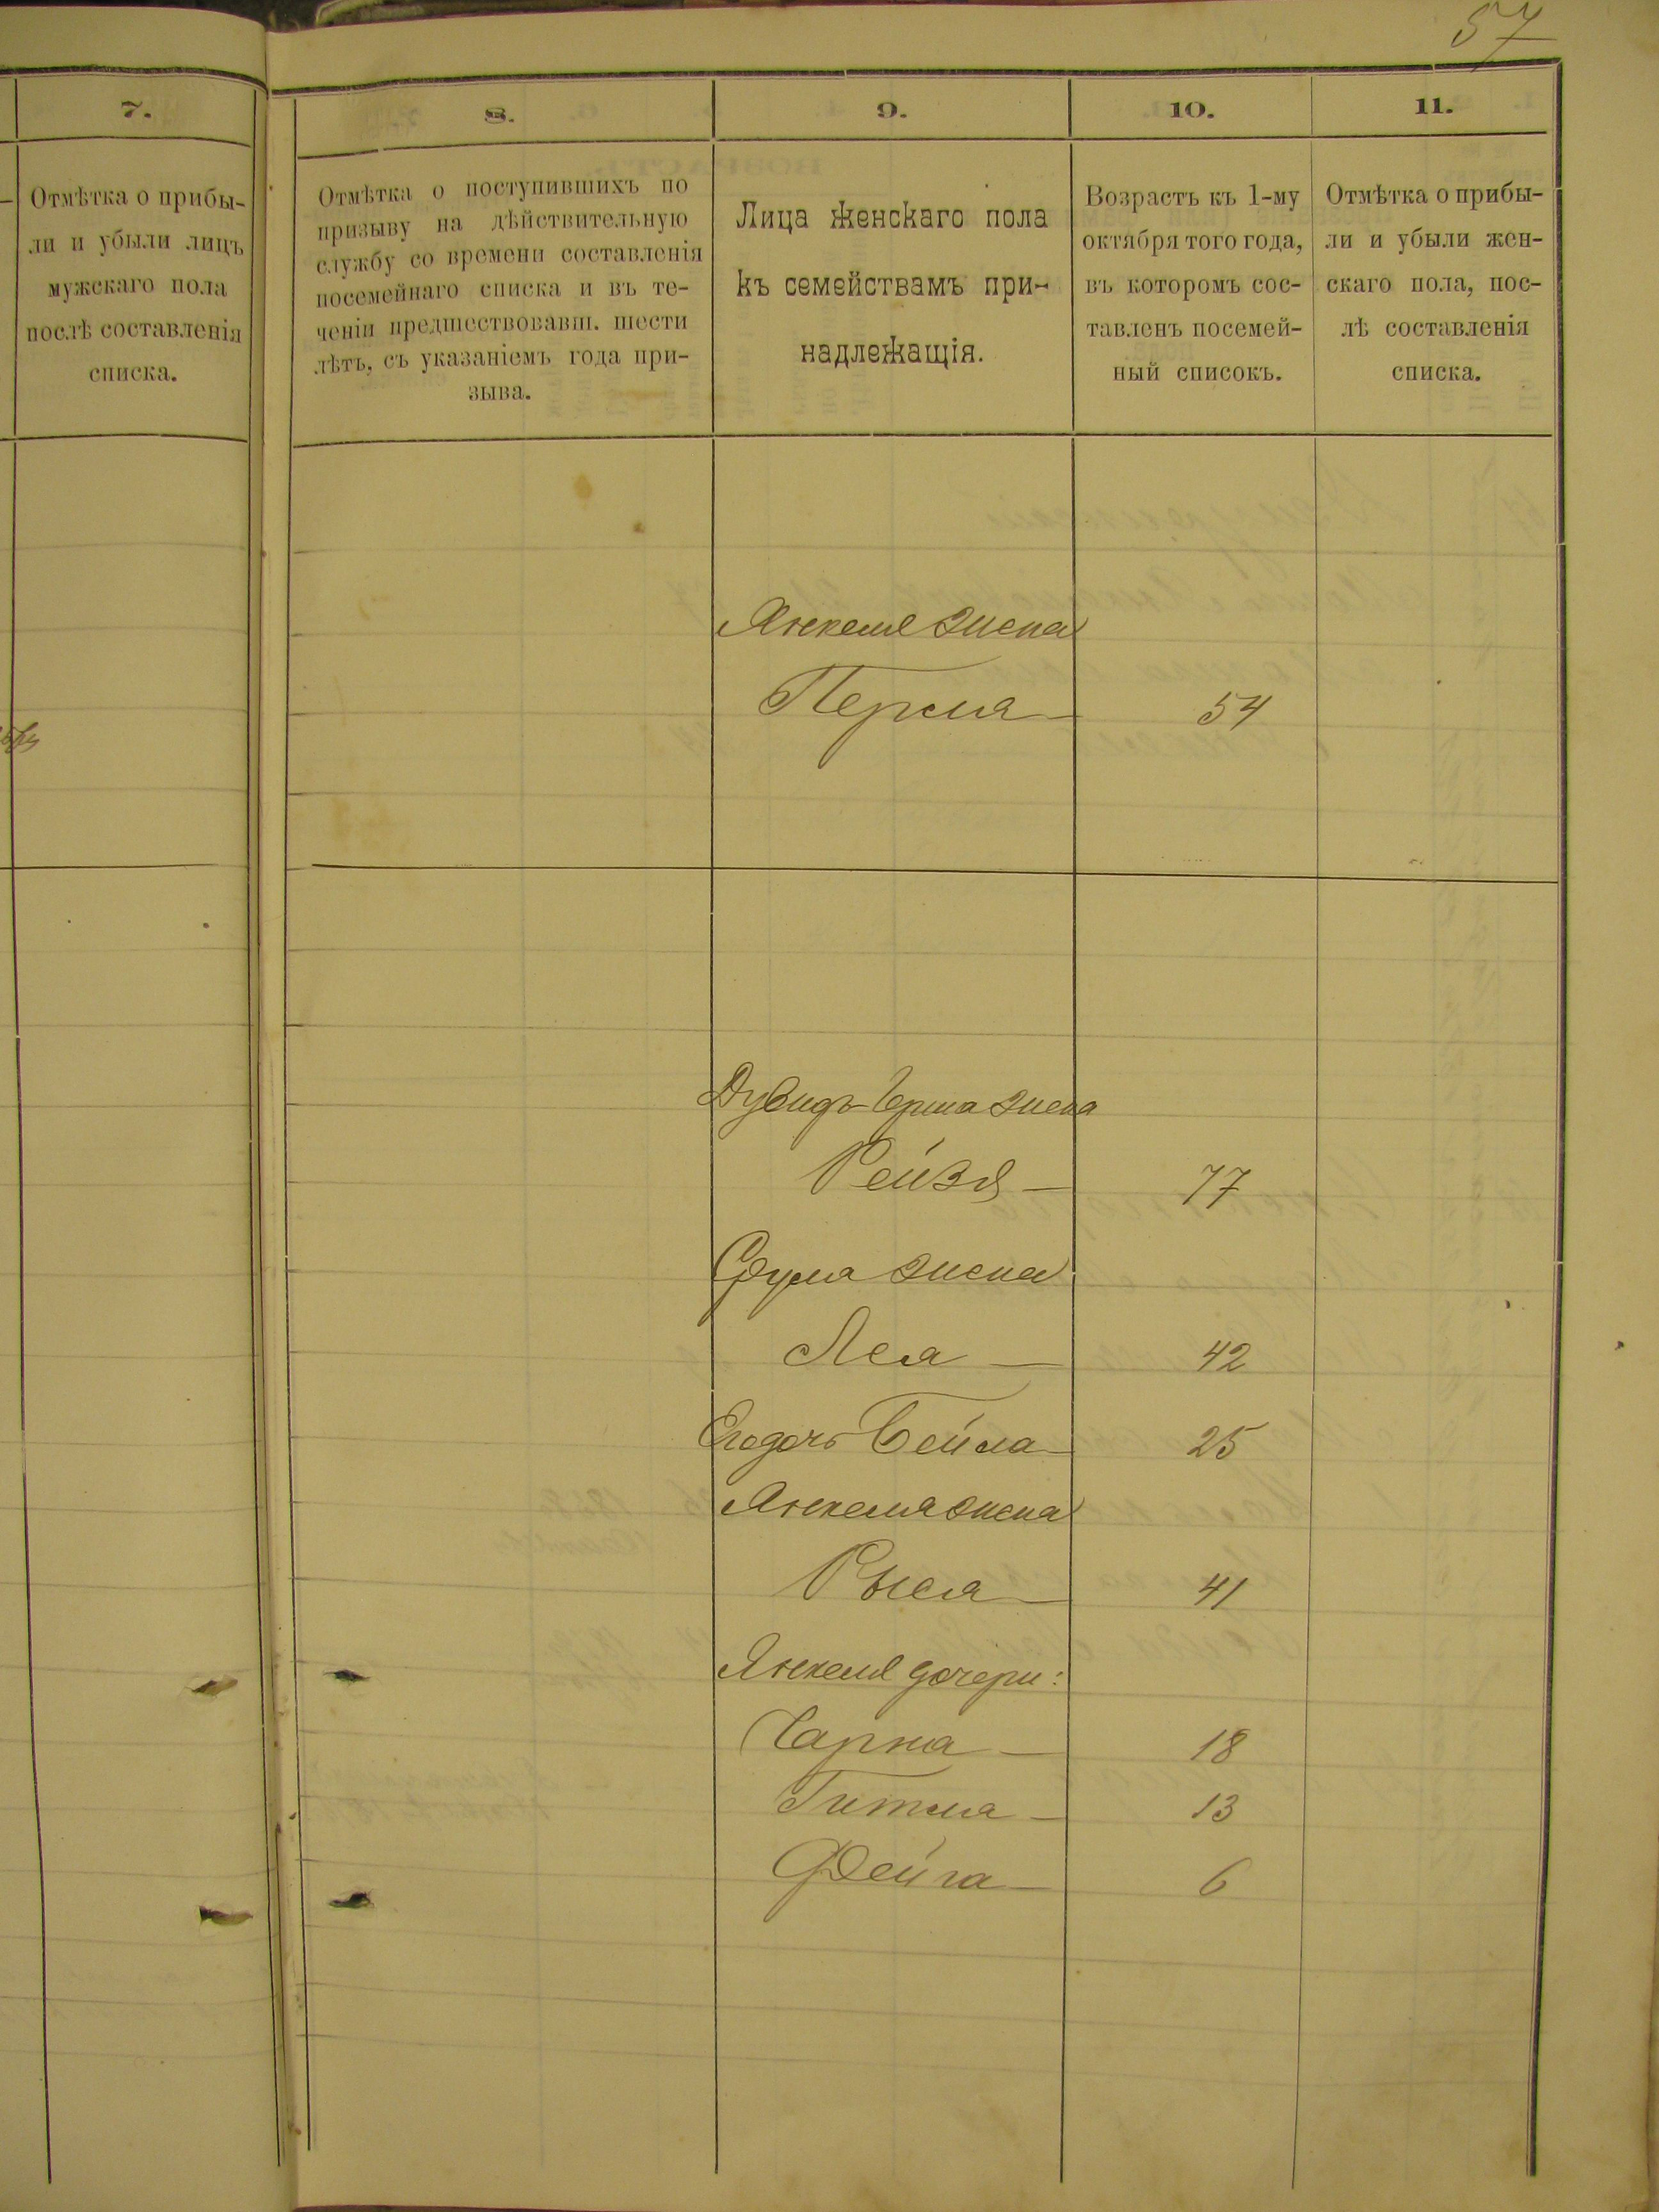 57
7.
Отмѣтка о прибы-
ли и убыли лицъ
мужскаго пола
послѣ составленія
списка.
8.
Отмѣтка о поступившихъ по
призыву на дѣйствительную
службу со времени составленія
посемейнаго списка и въ те-
ченіи предшествовавш. шести
лѣтъ, съ указаніемъ года при-
зыва.
9.
Лица женскаго пола
къ семействамъ при-
надлежащія.
10.
Возрастъ къ 1-му
октября того года,
въ которомъ сос-
тавленъ посемей-
ный списокъ.
11.
Отмѣтка о прибы-
ли и убыли жен-
скаго пола, пос-
лѣ составленія
списка.
Янкеля жена
Перля — 54
Дувидъ-Герша жена
Рейзя — 77
Срула жена
Лея — 42
Его дочь Бейла — 25
Янкеля жена
Рыся — 41
Янкеля дочери:
Чарна — 18
Гитля — 13
Фейга — 6